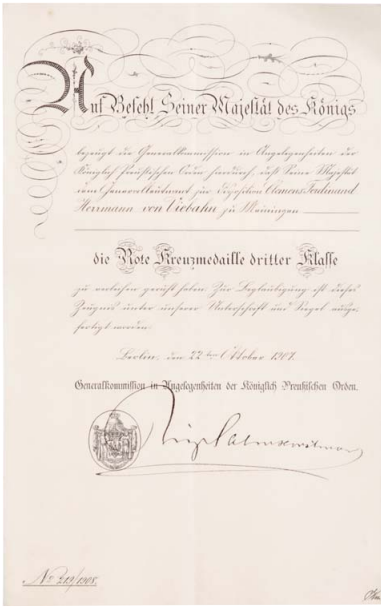 Auf Befehl Seiner Majestät des Königs
bezeugt die Generalkommission in Angelegenheiten der
Königlich Preußischen Orden hierdurch, daß Seine Majestät
dem Generalleutnant zur Disposition Clemens Ferdinand
Herrmann von Viebahn zu Meiningen
die Rote Kreuzmedaille dritter Klasse
zu verleihen geruht haben. Zur Beglaubigung ist dieses
Zeugnis unter unserer Unterschrift und Siegel ausge-
fertigt worden.
Berlin, den 22ten Oktober 1907.
Generalkommission in Angelegenheiten der Königlich Preußischen Orden.